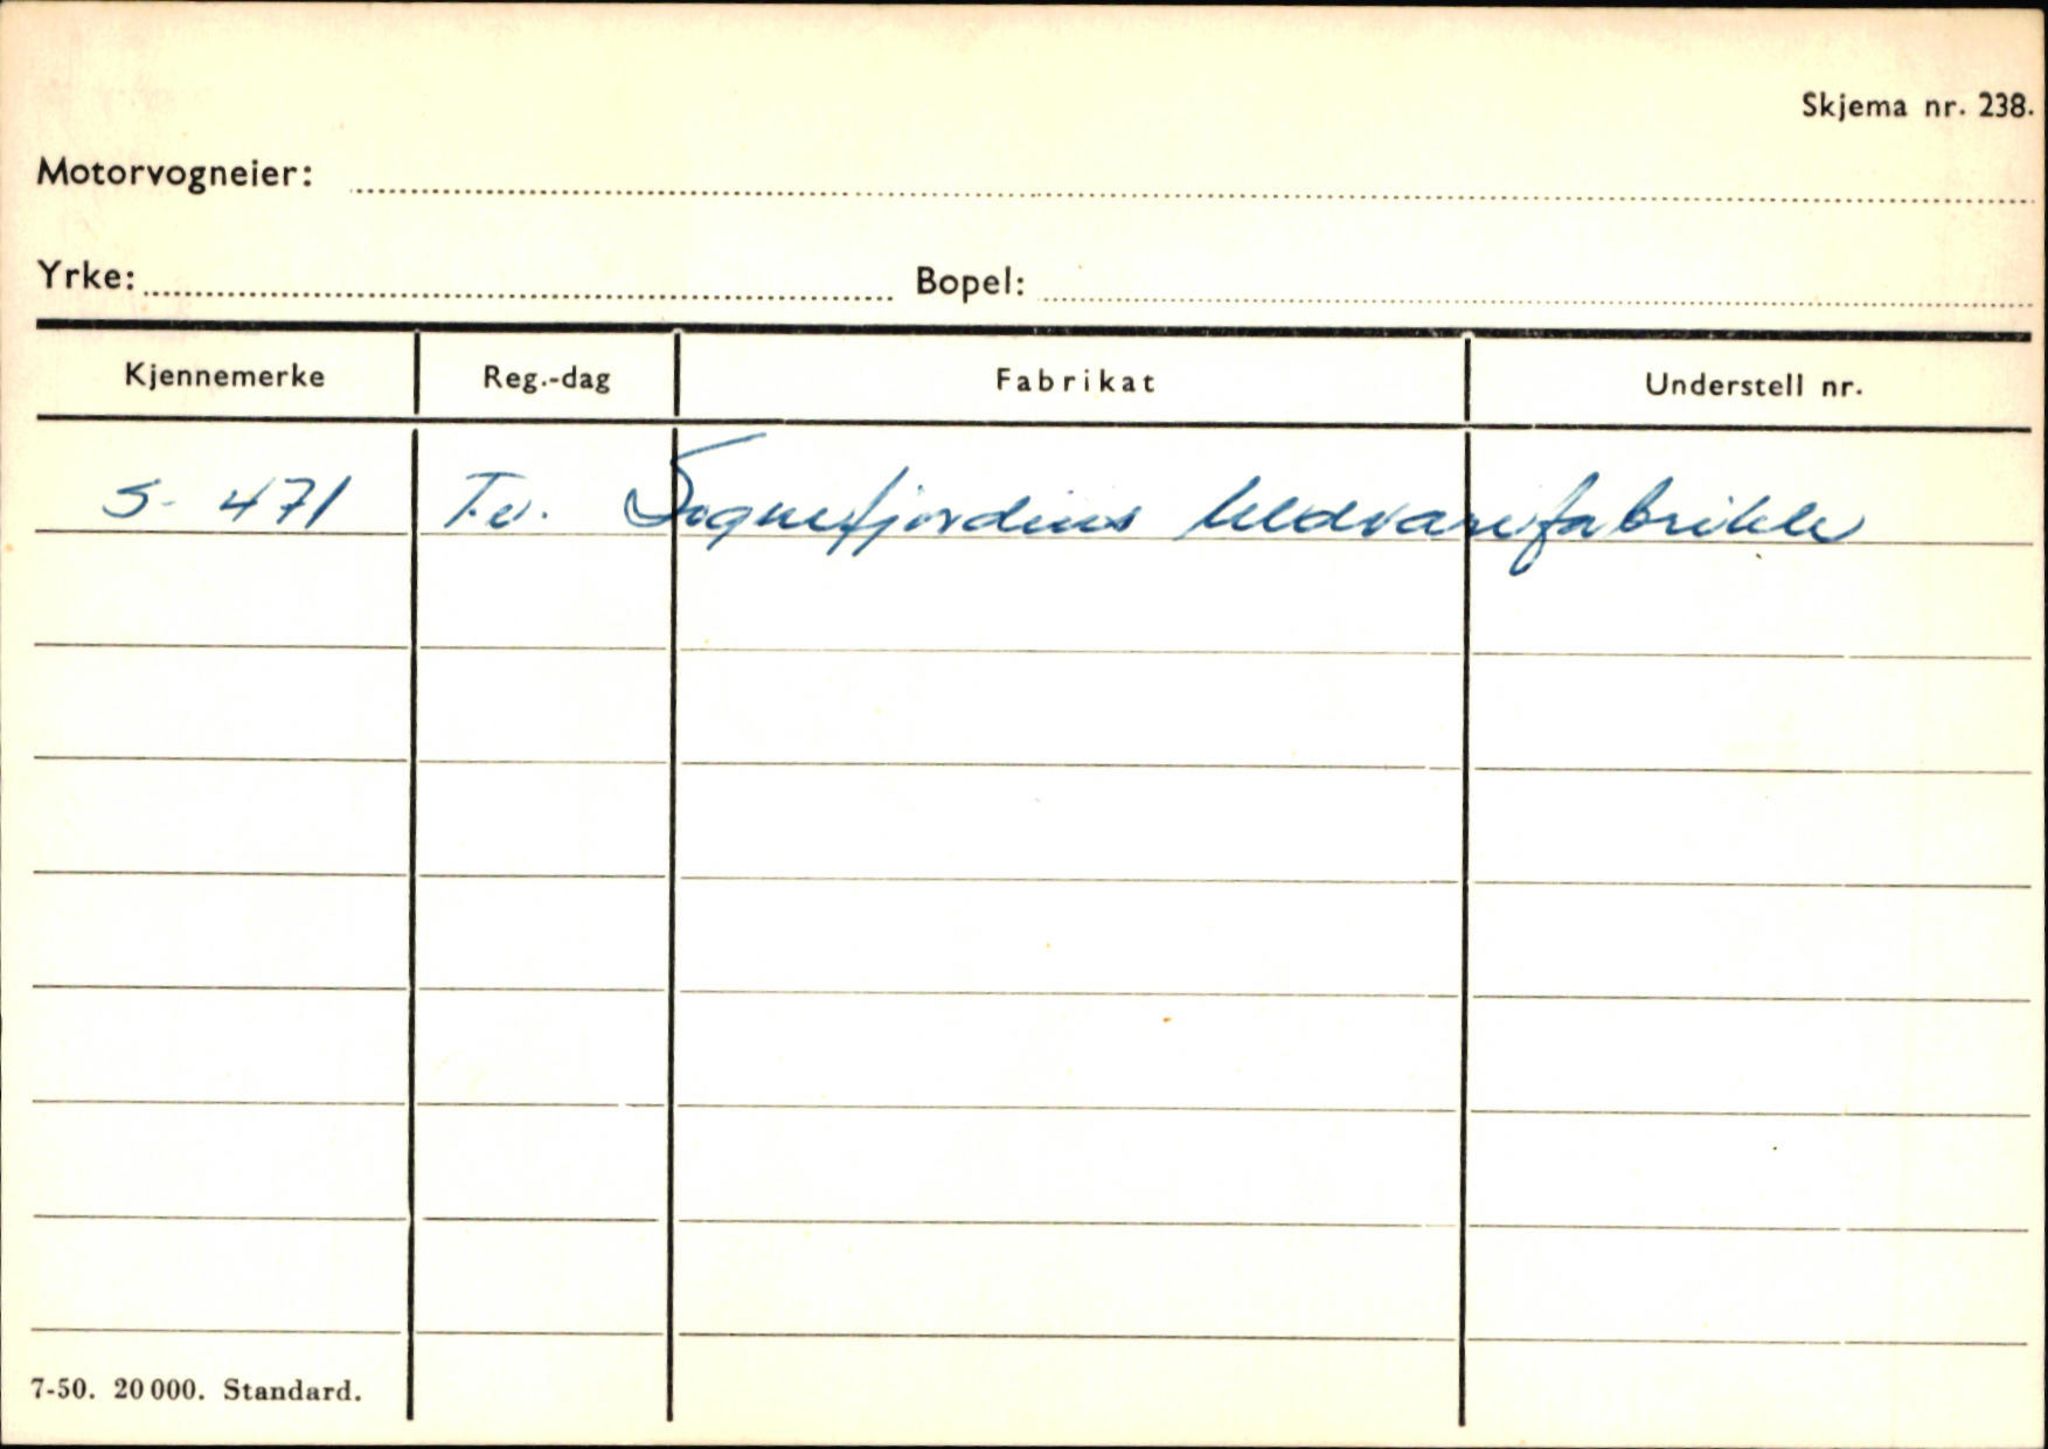 Skjema nr. 238.
Motorvogneier:
Yrke: Bopel:
Kjennemerke Reg.-dag Fabrikat Understell nr.
S- 471 T.v. Sognefjordens
7-50. 20 000. Standard.